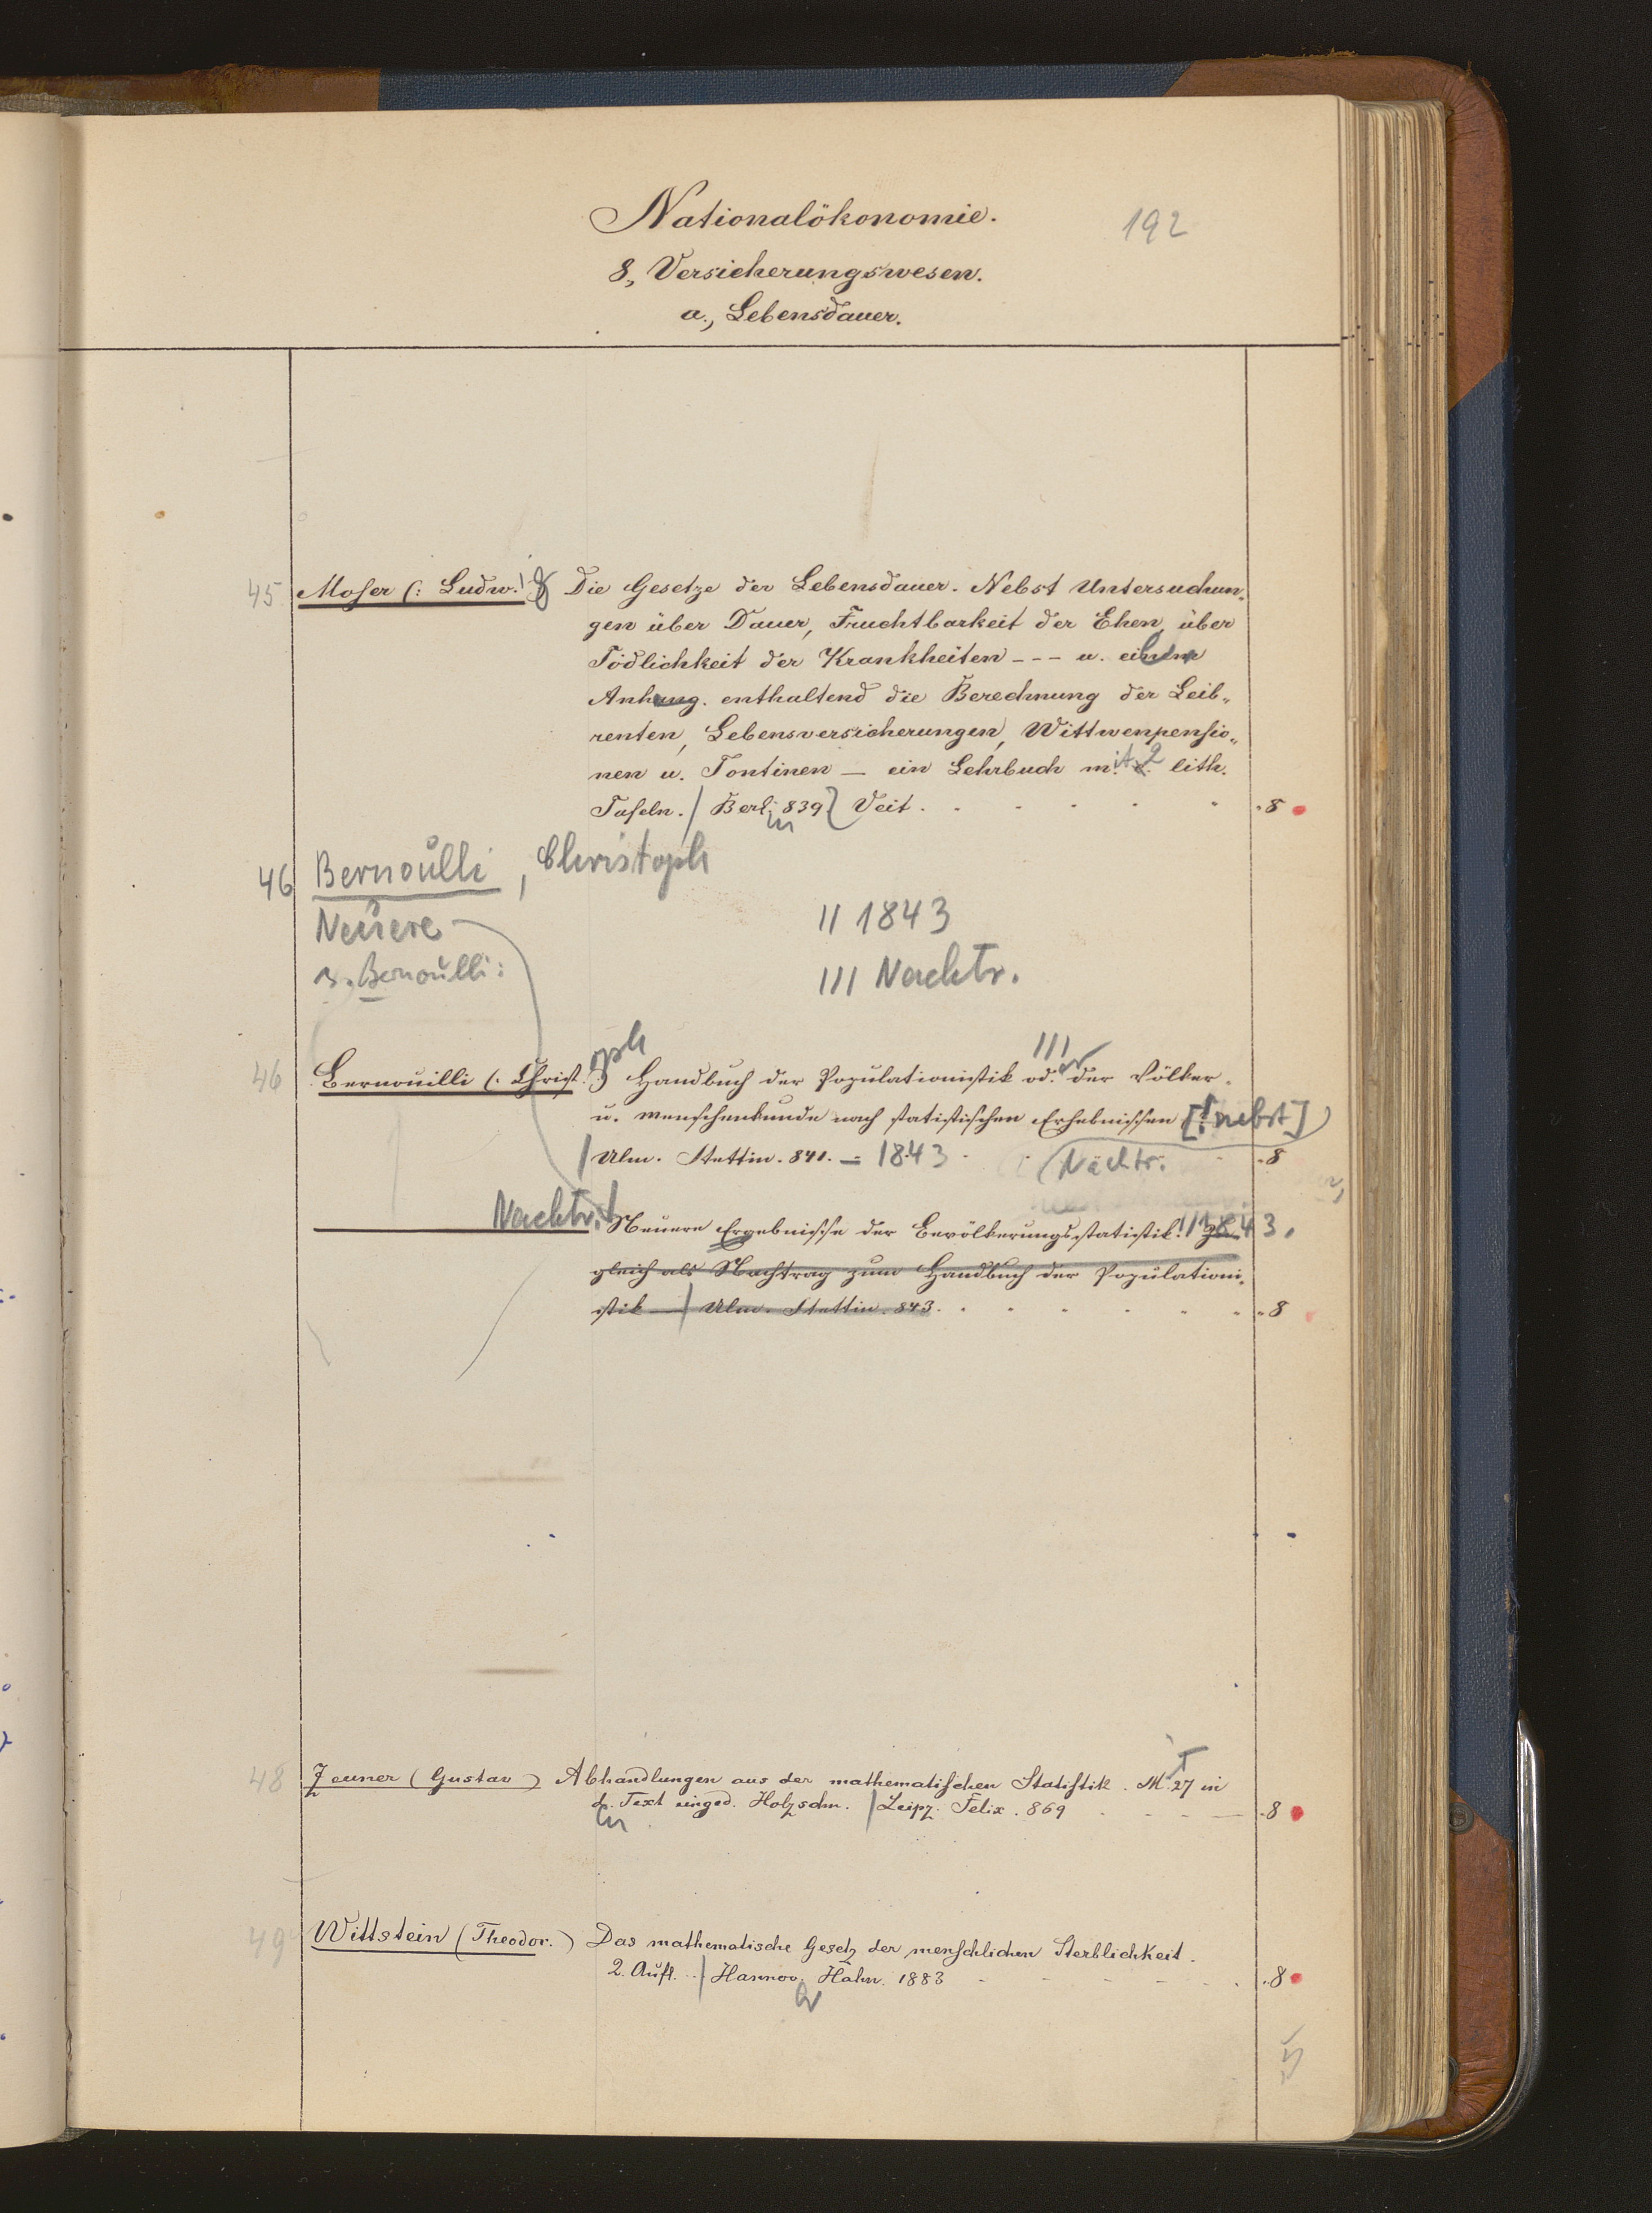 Nationalökonomie.
192
8, Versicherungswesen.
a., Lebensdauer.
45 Moser (: Ludw. Die Gesetze der Lebensdauer. Nebst Untersuchun-
gen über Dauer, Fruchtbarkeit der Ehen, über
Tödlichkeit der Krankheiten --- u. einem
Anhang. enthaltend die Berechnung der Leib-
renten, Lebensversicherungen, Wittwenpensio-
nen u. Tontinen — ein Lehrbuch mit 2 lith.
Tafeln. / Berlin 839 Veit. 8
46 Bernoulli, Christoph
Neuere
s. Bernoulli:
II 1843
III Nachtr.
46 Bernouilli (: Christoph) Handbuch der Populationistik od. der Völker-
III
u. Menschenkunde nach statistischen Erhebnissen [! nebst]
/ Ulm. Stettin. 841. – 1843 Nachtr. 8
Nachtr. Neuere Ergebnisse der Bevölkerungsstatistik! 1843. Zu-
gleich als Nachtrag zum Handbuch der Populationi-
stik — / Ulm. Stettin. 843. 8
48 Zeuner (Gustav) Abhandlungen aus der mathematischen Statistik. M. 27 in
d. Text einged. Holzschn. / Leipz. Felix. 869 8
49 Wittstein (Theodor.) Das mathematische Gesetz der menschlichen Sterblichkeit.
2. Aufl. / Hannov. Hahn. 1883 8